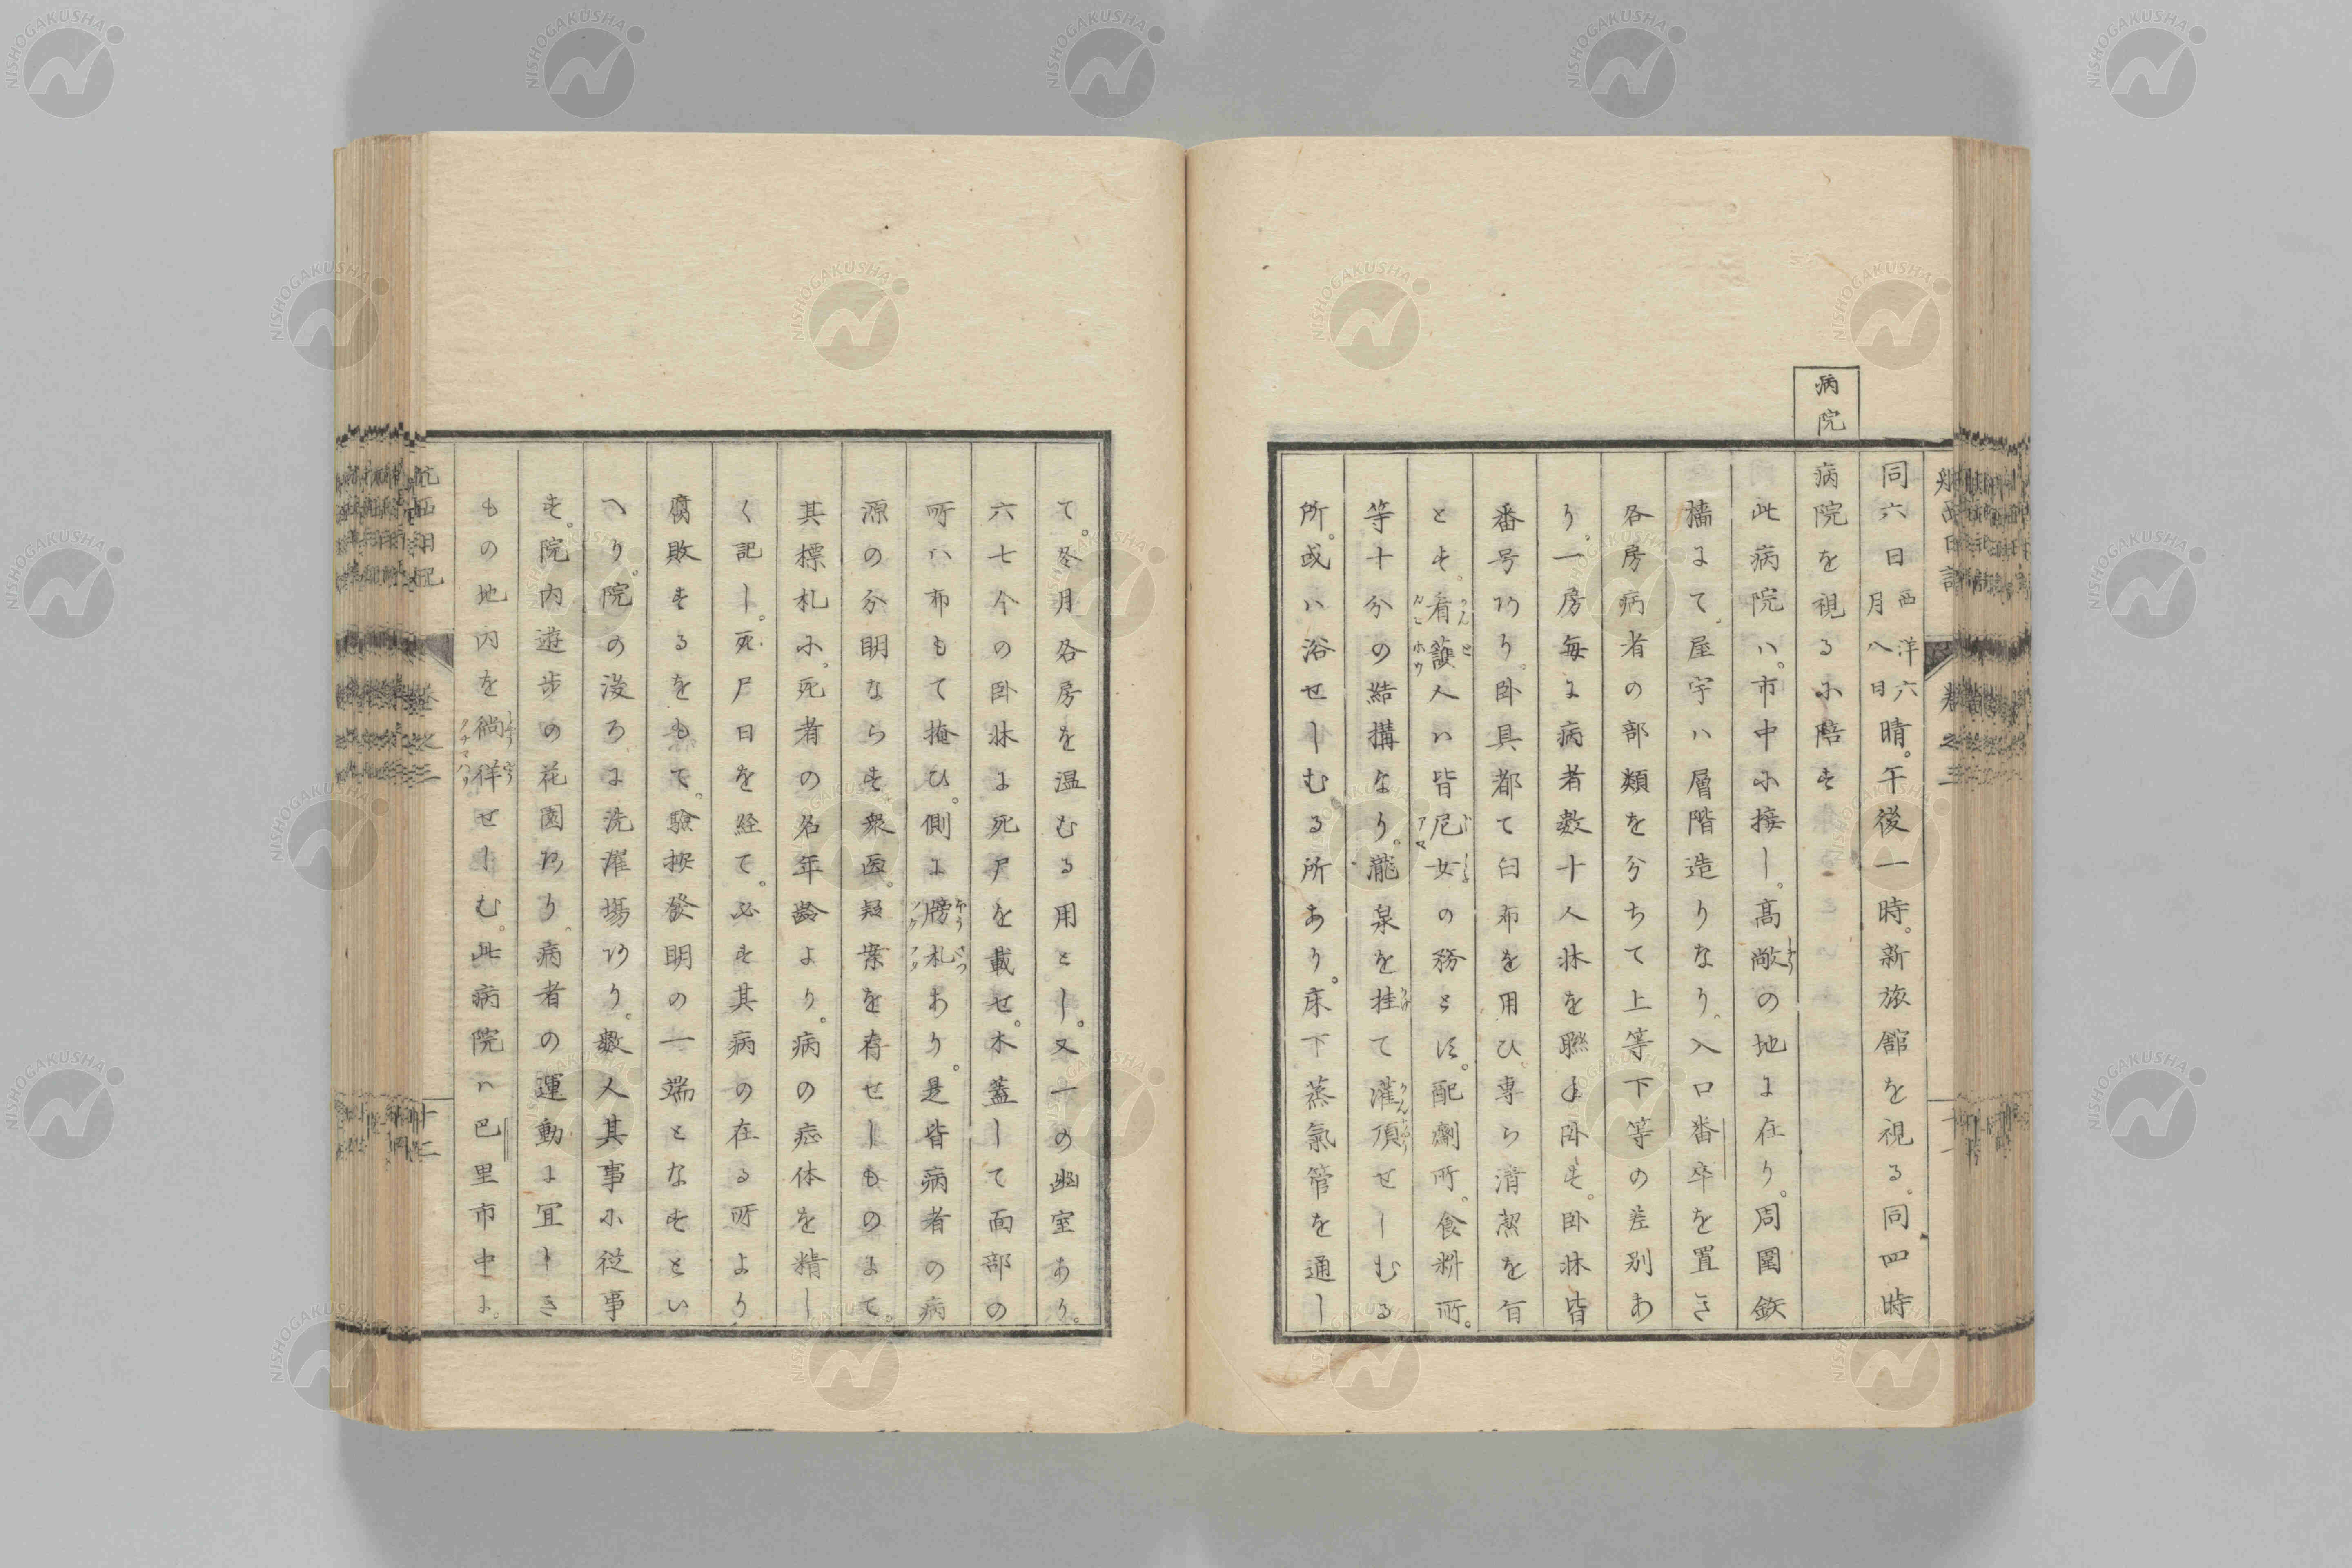 病院
同六日西洋六月八日晴。午後一時。新旅館を視る。同四時
病院を視るに陪す
此病院ハ。市中に撰し。高敞の地に在り。周圍鉄
墻にて。屋宇ハ層階造りなり。入口番卒を置き
各房病者の部類を分ちて上等下等の差別あ
り。一房毎に病者數十人牀を聯ねて卧す。卧牀皆
番号あり。卧具都て白布を用ひ。専ら清潔を旨
とす。看護人ハ皆尼女の務とす。配劑所。食料所。
等十分の結構なり。瀧泉を挂て灌頂せしむる
所。或ハ浴せしむる所あり。床下蒸氣管を通し
て。冬月各房を温むる用とし。又一の幽室あり。
六七个の卧牀に死尸を載せ。木蓋して面部の
所ハ布もて掩ひ。側に牓札あり。是皆病者の病
源の分明ならす衆醫。疑案を存せしものにて。
其標札に。死者の名年齢より。病の症体を精し
く記し。死尸日を経て。必す其病の在る所より
腐敗するをもて。驗按發明の一端となすとい
へり。院の後ろに洗濯場あり。數人其事に従事
す。院内遊歩の花園あり。病者の運動に宜しき
もの地内を徜徉せしむ。此病院ハ巴里市中に。
航西日記
巻之三
十二
NISHOGAKUSHA